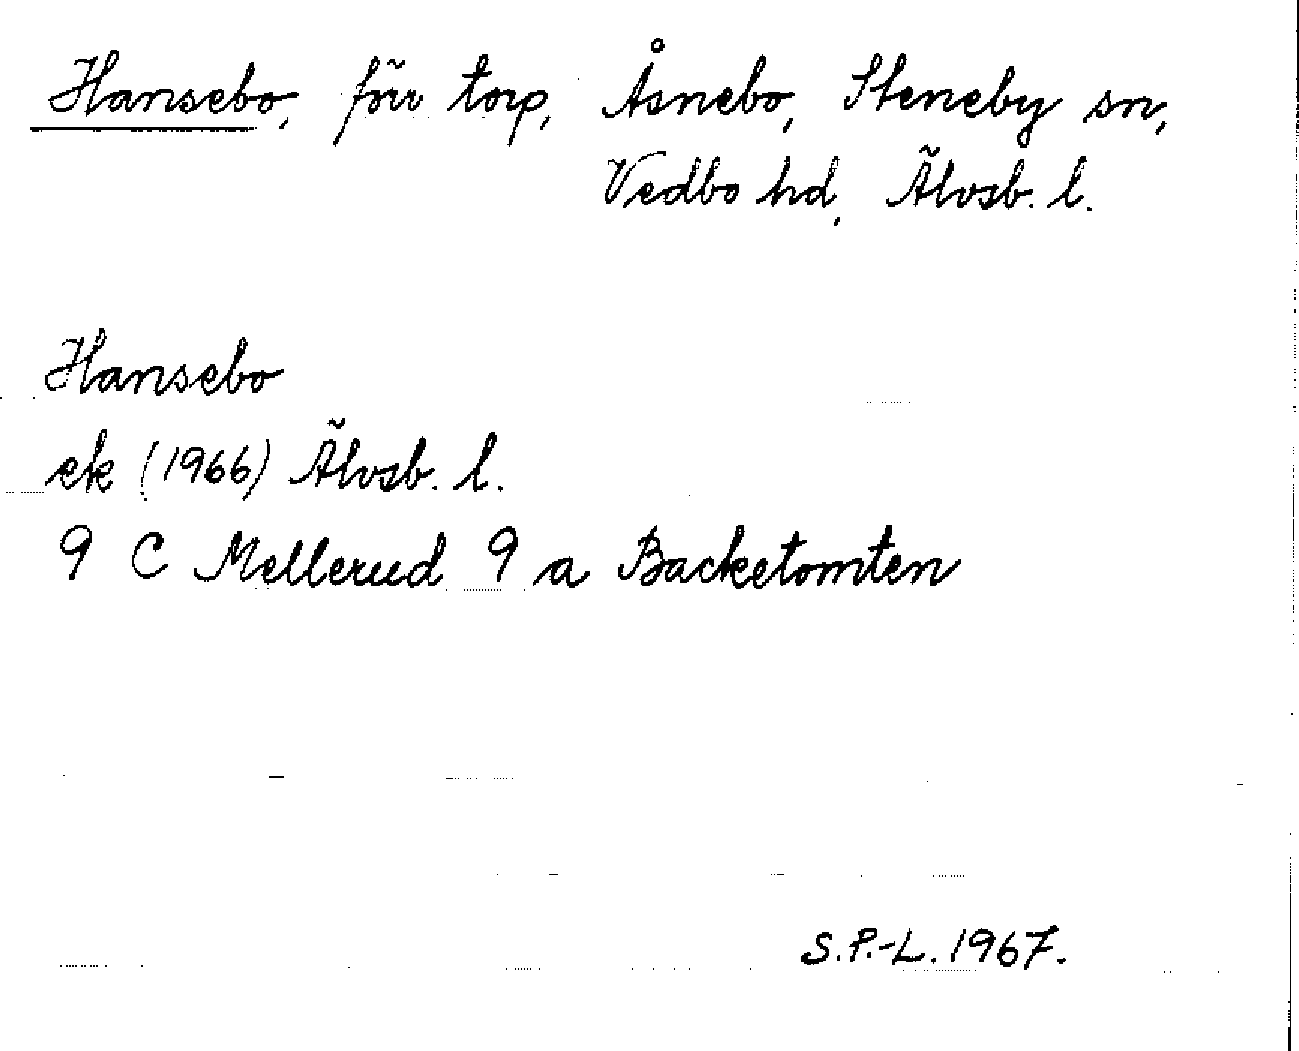 Hansebo, förr torp, Åsnebo, Steneby sn,
Vedbo hd, Älvsb. l.
Hansebo
ek (1966) Älvsb. l.
9 C Mellerud 9 a Backetomten
S.P.-L. 1967.